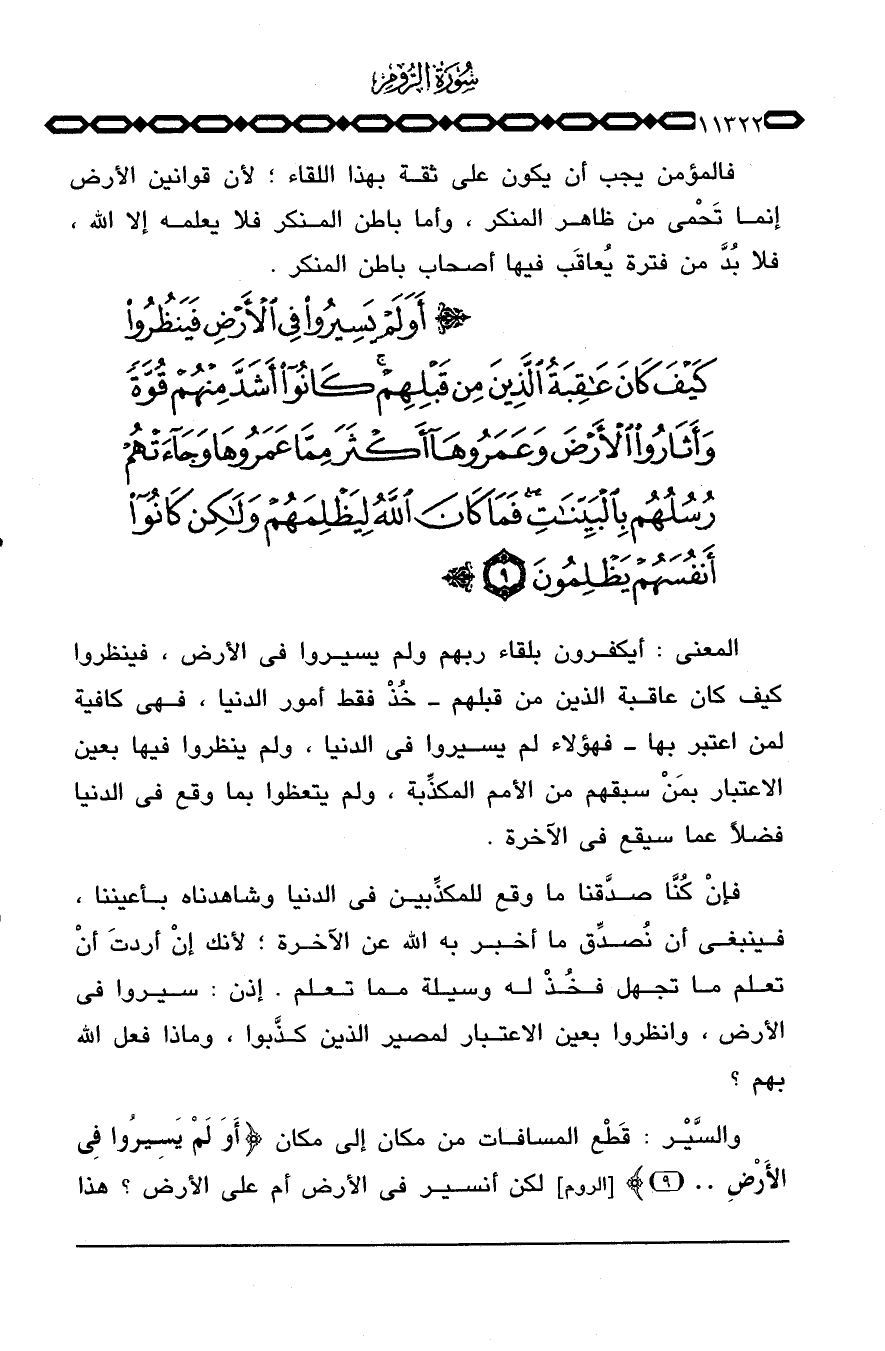 سُورَةُ الرُّومِ
١١٣٢٢
فالمؤمن يجب أن يكون على ثقة بهذا اللقاء ؛ لأن قوانين الأرض
إنما تَحْمى من ظاهر المنكر ، وأما باطن المنكر فلا يعلمه إلا الله ،
فلا بُدَّ من فترة يُعاقَب فيها أصحاب باطن المنكر .
﴿ أَوَلَمْ يَسِيرُواْ فِى ٱلْأَرْضِ فَيَنظُرُواْ
كَيْفَ كَانَ عَٰقِبَةُ ٱلَّذِينَ مِن قَبْلِهِمْ ۚ كَانُوٓاْ أَشَدَّ مِنْهُمْ قُوَّةً
وَأَثَارُواْ ٱلْأَرْضَ وَعَمَرُوهَآ أَكْثَرَ مِمَّا عَمَرُوهَا وَجَآءَتْهُمْ
رُسُلُهُم بِٱلْبَيِّنَٰتِ ۖ فَمَا كَانَ ٱللَّهُ لِيَظْلِمَهُمْ وَلَٰكِن كَانُوٓاْ
أَنفُسَهُمْ يَظْلِمُونَ ٩ ﴾
المعنى : أيكفرون بلقاء ربهم ولم يسيروا فى الأرض ، فينظروا
كيف كان عاقبة الذين من قبلهم - خُذْ فقط أمور الدنيا ، فهى كافية
لمن اعتبر بها - فهؤلاء لم يسيروا فى الدنيا ، ولم ينظروا فيها بعين
الاعتبار بمَنْ سبقهم من الأمم المكذِّبة ، ولم يتعظوا بما وقع فى الدنيا
فضلاً عما سيقع فى الآخرة .
فإنْ كُنَّا صدَّقنا ما وقع للمكذِّبين فى الدنيا وشاهدناه بأعيننا ،
فينبغى أن نُصدِّق ما أخبر به الله عن الآخرة ؛ لأنك إنْ أردتَ أنْ
تعلم ما تجهل فخُذْ له وسيلة مما تعلم . إذن : سيروا فى
الأرض ، وانظروا بعين الاعتبار لمصير الذين كذَّبوا ، وماذا فعل الله
بهم ؟
والسَّيْر : قَطْع المسافات من مكان إلى مكان ﴿أَوَ لَمْ يَسِيرُوا فِى
الأَرْضِ .. (٩)﴾ [الروم] لكن أنسير فى الأرض أم على الأرض ؟ هذا